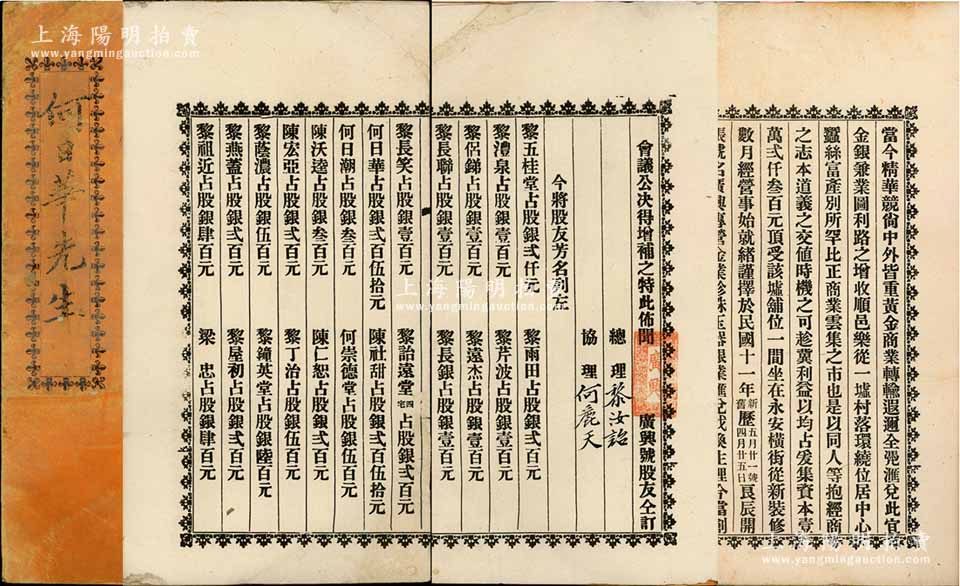 上海陽明拍賣
www.yangmingauction.com
當今精華競尙中外皆重黃金商業轉輸遐邇全凴滙兌此宜
金銀兼業圖利路之增收順邑樂從一墟村落環繞位居中心
蠶絲富產別所罕比正商業雲集之市也是以同人等抱經商
之志本道義之交値時機之可趁冀利益以均占爰集資本壹
萬弍仟叁百元頂受該墟舖位一間坐在永安橫街從新裝修
數月經營事始就緒謹擇於民國十一年新歷五月廿一號舊歷四月廿五日良辰開
張號名廣興專營金業
會議公决得增補之特此佈聞 廣興號股友仝訂
總理 黎汝詒
協理 何麗天
今將股友芳名列左
黎五桂堂占股銀弍仟元 黎雨田占股銀弍百元
黎澧泉占股銀壹百元 黎芹波占股銀壹百元
黎侶銻占股銀壹百元 黎遠杰占股銀壹百元
黎長聯占股銀壹百元 黎長銀占股銀壹百元
黎長笑占股銀壹百元 黎詒遠堂四宅占股銀弍百元
何日華占股銀弍百伍拾元 陳社甜占股銀弍百伍拾元
何日潮占股銀叁百元 何崇德堂占股銀伍百元
陳沃逵占股銀叁百元 陳仁恕占股銀弍百元
陳宏亞占股銀弍百元 黎丁治占股銀伍百元
黎蔭濃占股銀伍百元 黎鐘英堂占股銀陸百元
黎燕蓋占股銀弍百元 黎屋初占股銀弍百元
黎祖近占股銀肆百元 梁忠占股銀肆百元
何日華先生
上海陽明拍賣
www.yangmingauction.com
上海陽明拍賣
www.yangmingauction.com